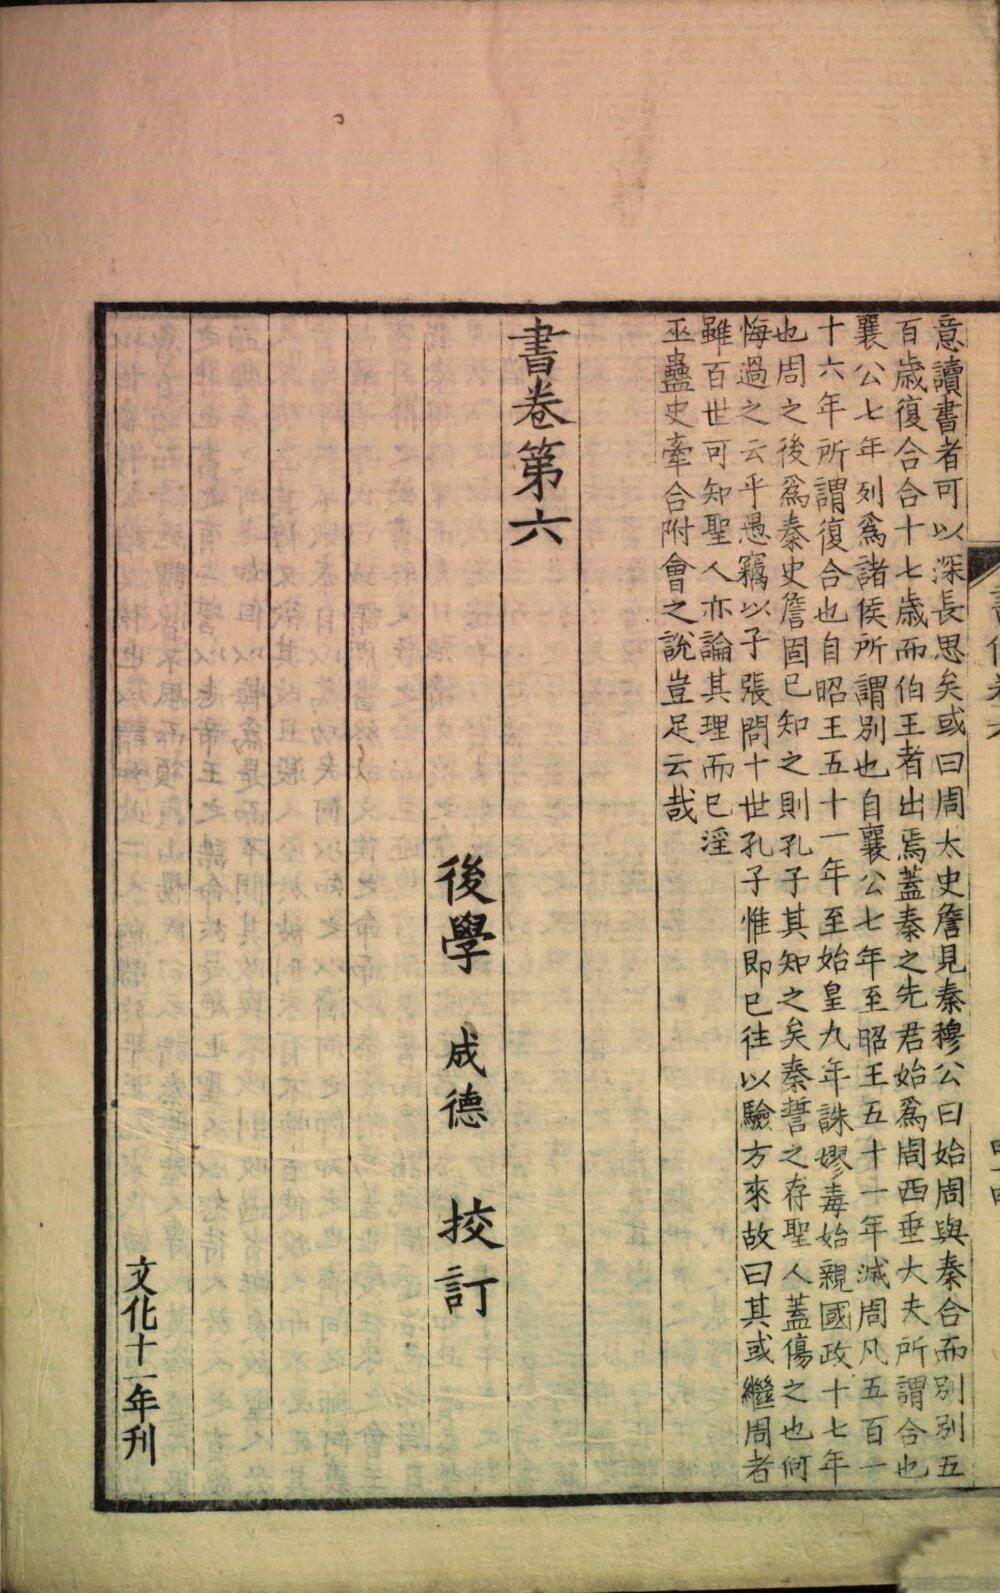 意讀書者可以深長思矣或曰周太史儋見秦穆公曰始周與秦合而別別五
百歲復合合十七歲而伯王者出焉蓋秦之先君始爲周西垂大夫所謂合也
襄公七年列爲諸侯所謂別也自襄公七年至昭王五十一年滅周凡五百一
十六年所謂復合也自昭王五十一年至始皇九年誅嫪毒始親國政十七年
也周之後爲秦史儋固已知之則孔子其知之矣秦誓之存聖人蓋傷之也何
悔過之云乎愚竊以子張問十世孔子惟即已往以驗方來故曰其或繼周者
雖百世可知聖人亦論其理而已淫
巫蠱史牽合附會之說豈足云哉
書卷第六
後學 成德 挍訂
文化十一年刊